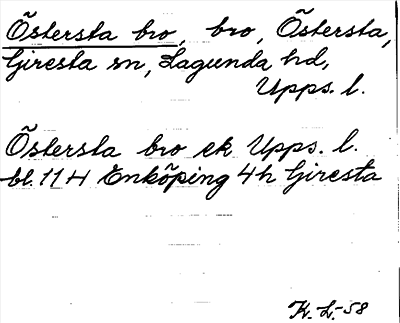 Östersta bro, bro, Östersta,
Giresta sn, Lagunda hd,
Upps. l.
Östersta bro ek Upps. l.
bl. 11 H Enköping 4h Giresta
K. L. -58